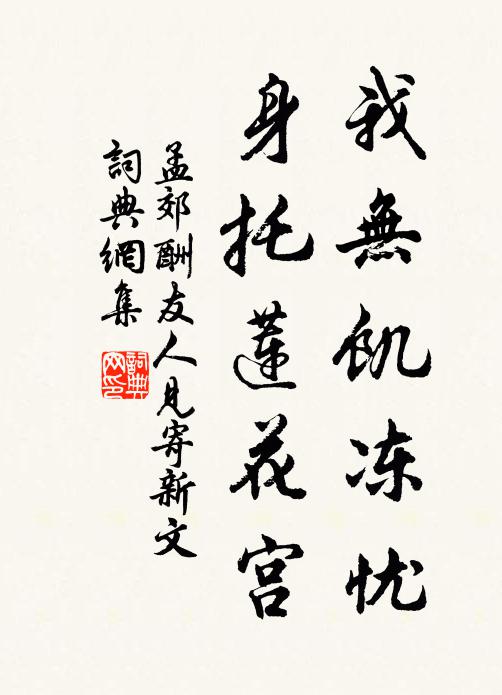 我無飢冻忧
身托蓮花宫
孟郊酬友人見寄新文
詞典網集
詞典
网印